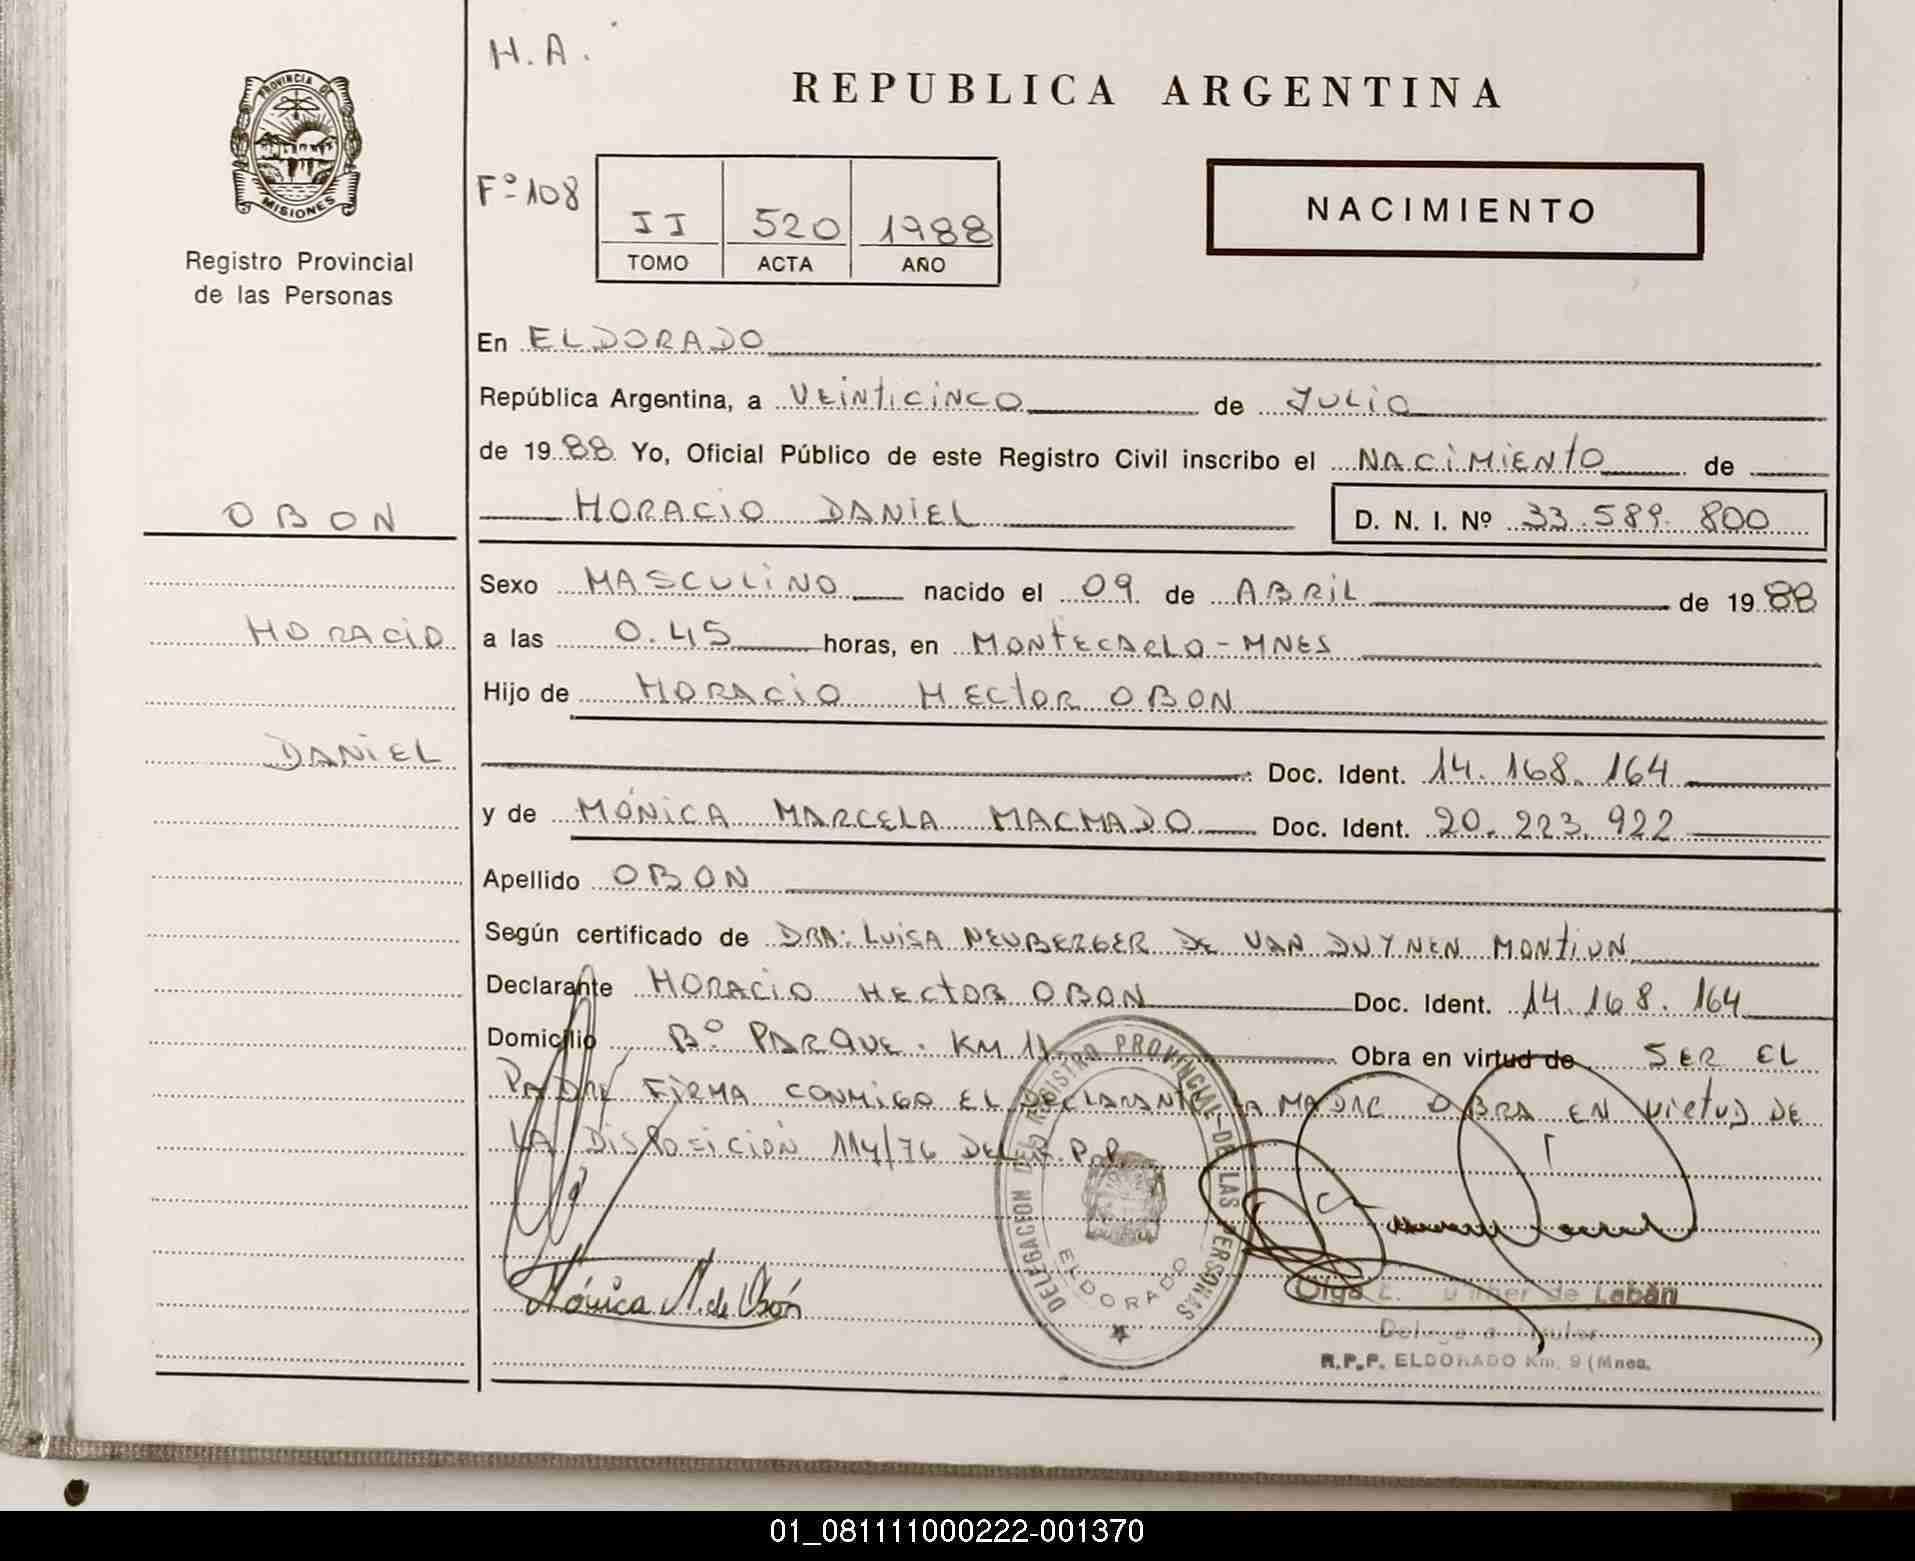 H.A.
REPUBLICA ARGENTINA
PROVINCIA DE
MISIONES
Registro Provincial
de las Personas
Fº 108
II 520 1988
TOMO ACTA AÑO
NACIMIENTO
En ELDORADO
República Argentina, a VEINTICINCO de JULIO
de 1988 Yo, Oficial Público de este Registro Civil inscribo el NACIMIENTO de
OBON
HORACIO DANIEL D. N. I. Nº 33.589.800
Sexo MASCULINO nacido el 09 de ABRIL de 1988
HORACIO
a las 0.45 horas, en MONTECARLO - MNES
Hijo de HORACIO HECTOR OBON
DANIEL
Doc. Ident. 14.168.164
y de MÓNICA MARCELA MACHADO Doc. Ident. 20.223.922
Apellido OBON
Según certificado de DRA: LUISA NEUBERGER DE VAN DUYNEN MONTIUN
Declarante HORACIO HECTOR OBON Doc. Ident. 14.168.164
Domicilio Bº PARQUE. KM 11 Obra en virtud de SER EL
PADRE FIRMA CONMIGO EL DECLARANTE LA MADRE OBRA EN VIRTUD DE
LA DISPOSICIÓN 114/76 DEL R.P.P.
DELEGACION DEL REGISTRO PROVINCIAL DE LAS PERSONAS
ELDORADO
Mónica M. de Obón
Olga E. de Labán
R.P.P. ELDORADO Km. 9 (Mnes.
01_081111000222-001370